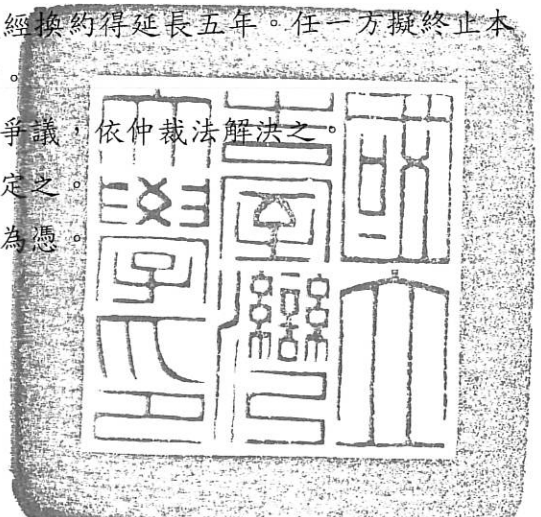 經換約得延長五年。任一方擬終止本
。
爭議，依仲裁法解決之。
定之。
為憑。
國立臺灣大學印